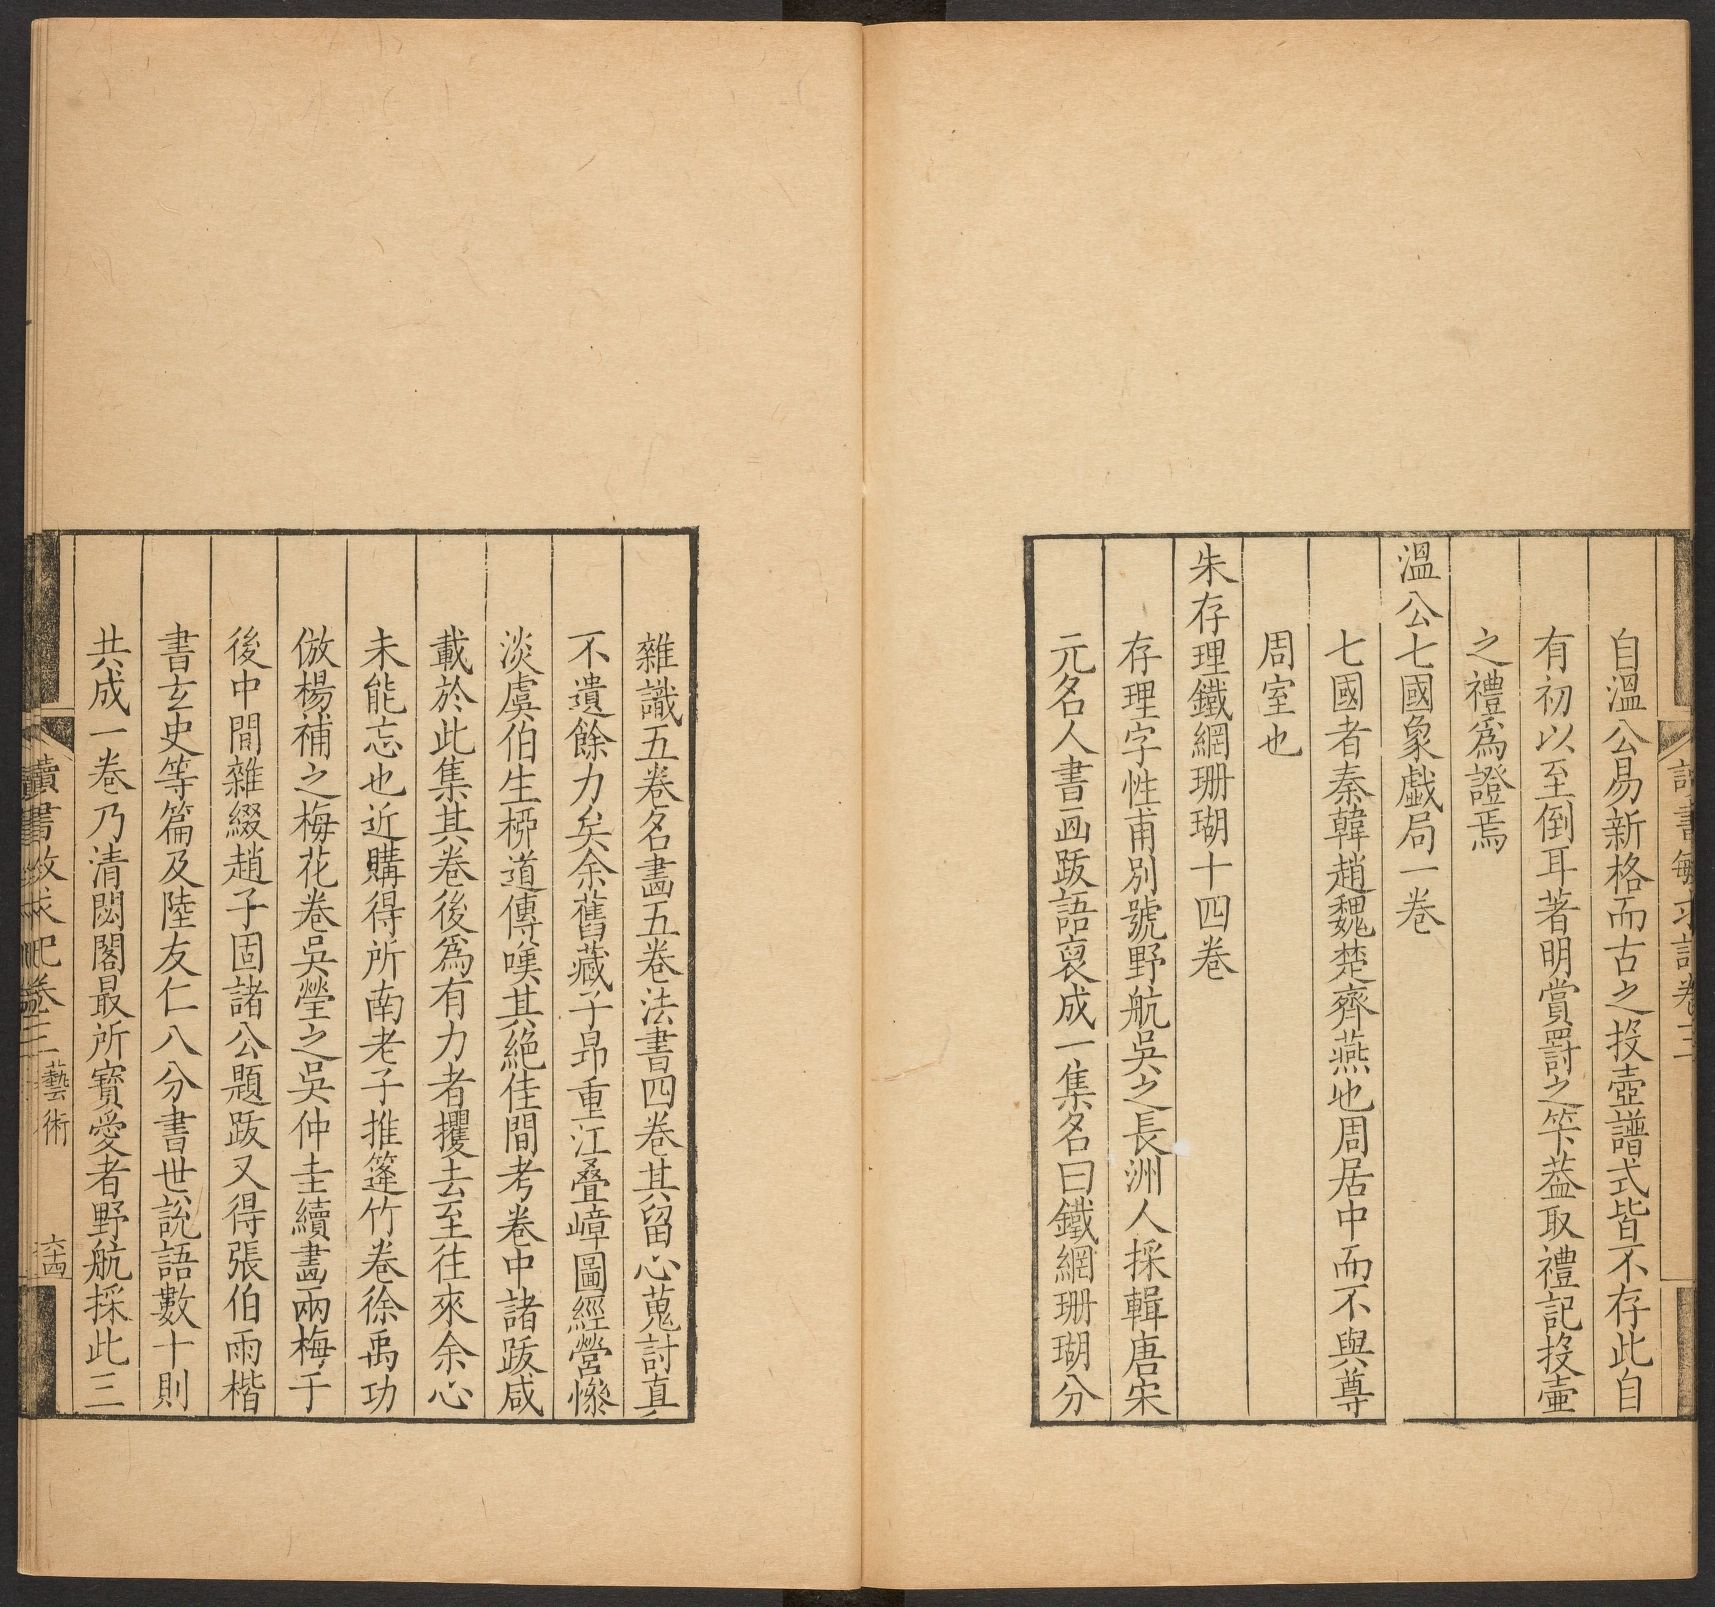 自溫公易新格而古之投壺譜式皆不存此自
有初以至倒耳著明賞罸之筭葢取禮記投壷
之禮爲證焉
溫公七國象戲局一卷
七國者秦韓趙魏楚齊燕也周居中而不與尊
周室也
朱存理鐵網珊瑚十四卷
存理字性甫別號野航吳之長洲人採輯唐宋
元名人書画跋語裒成一集名曰鐵網珊瑚分
雜識五卷名畫五卷法書四卷其留心蒐討真
不遺餘力矣余舊藏子昻重江叠嶂圖經營慘
淡虞伯生柳道傳嘆其絶佳間考卷中諸跋咸
載於此集其卷後爲有力者攫去至往來余心
未能忘也近購得所南老子推篷竹卷徐禹功
倣楊補之梅花卷吳瑩之吳仲圭續畫兩梅于
後中間雜綴趙子固諸公題跋又得張伯雨楷
書玄史等篇及陸友仁八分書世說語數十則
共成一卷乃清閟閣最所寶愛者野航採此三
讀書敏求記卷三 藝術 六十四